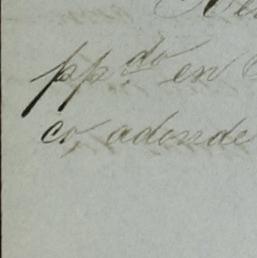 pp.do en
co, adonde